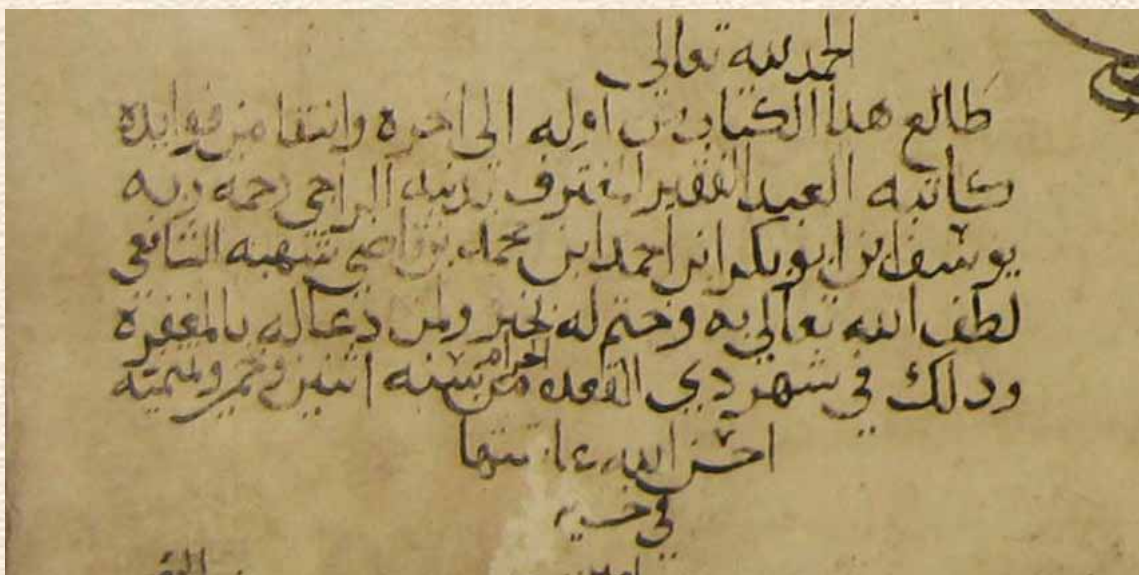 الحمد لله تعالى
طالع هذا الكتاب من أوله إلى آخره وانتقا من فوايده
كاتبه العبد الفقير المعترف بذنبه الراجي رحمه ربه
يوسف ابن ابو بكر ابن احمد ابن محمد بن قاضي شهبه الشافعي
لطف الله تعالى به وختم له بخير ولمن دعا له بالمغفرة
وذلك في شهر ذي القعده الحرام من سنه اثنين وخمسين وثمنمية
احسن الله عاقبتها
في خير